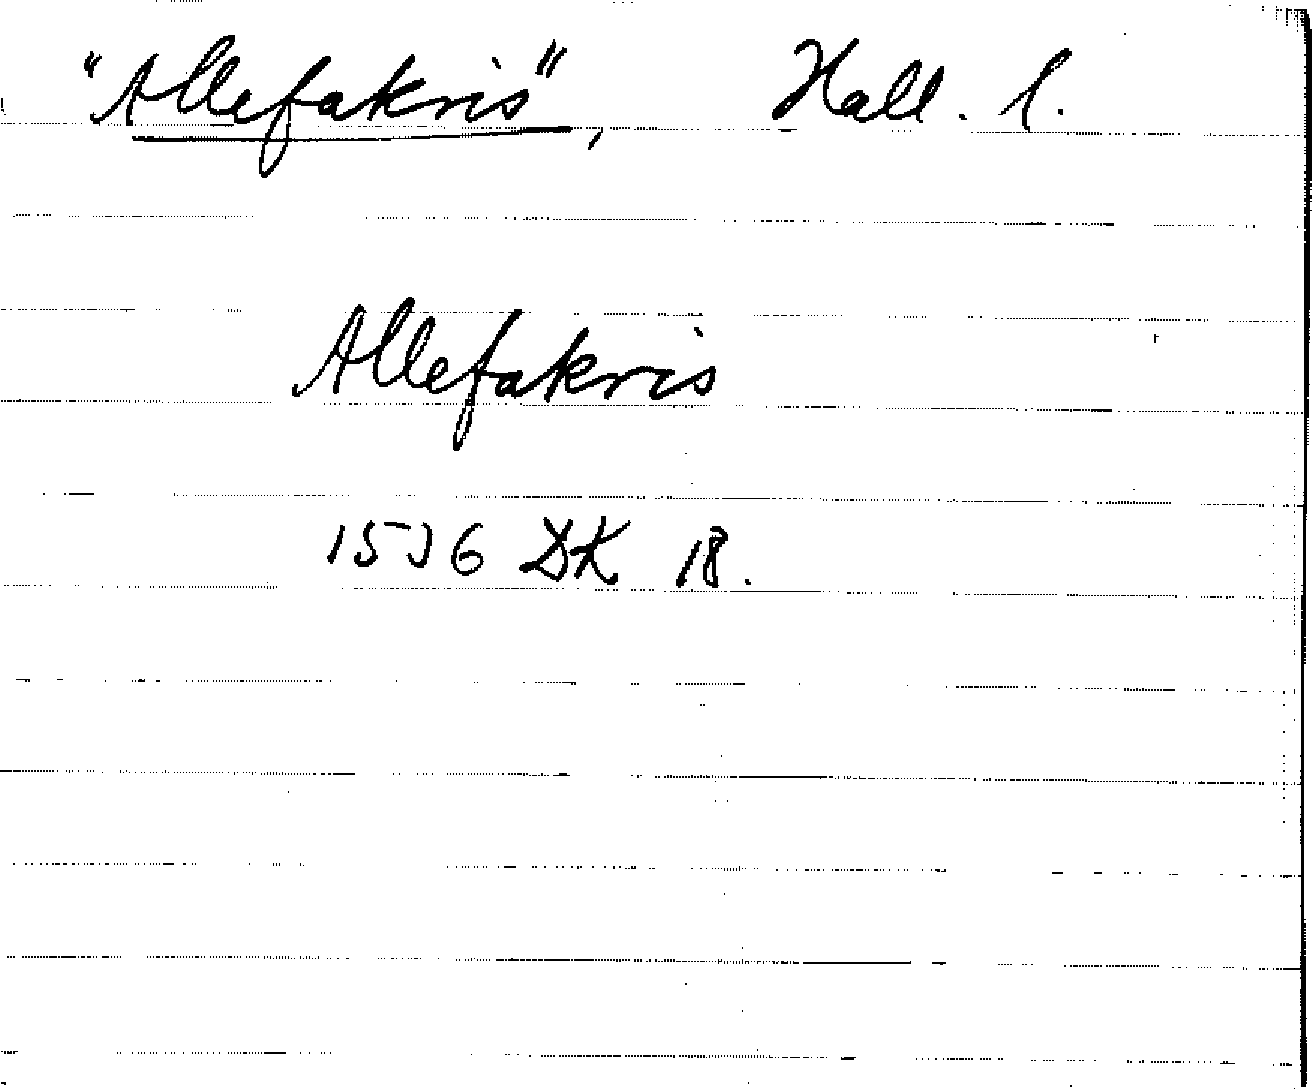 "Allefakris", Hall. l.
Allefakris
1536 DK 18.